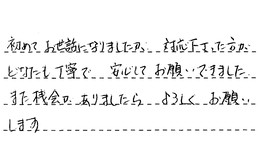 初めてお世話になりましたが 対応下さった方が
どなたも丁寧で 安心してお願いできました
また機会がありましたら よろしく お願い
します